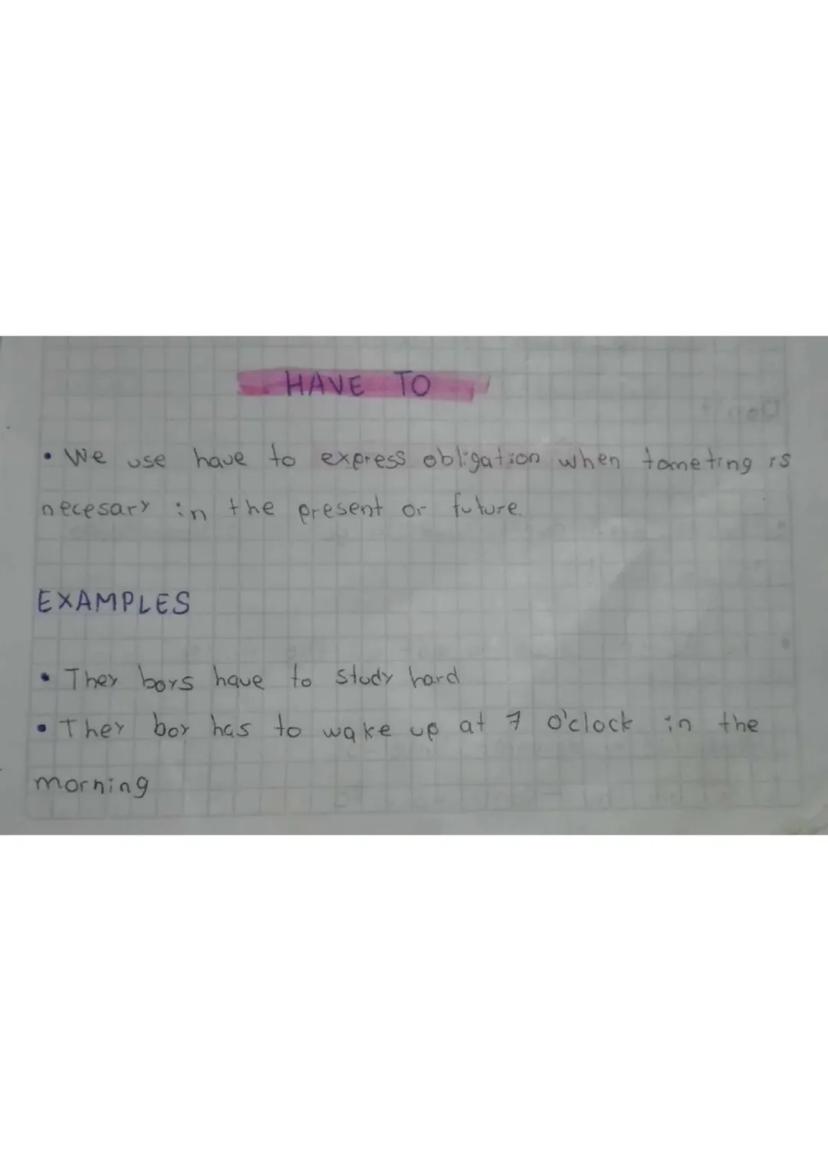 HAVE TO
• We use have to express obligation when tometing is
necesary in the present or future.
EXAMPLES
• They boys have to study hard
• They boy has to wake up at 7 o'clock in the
morning